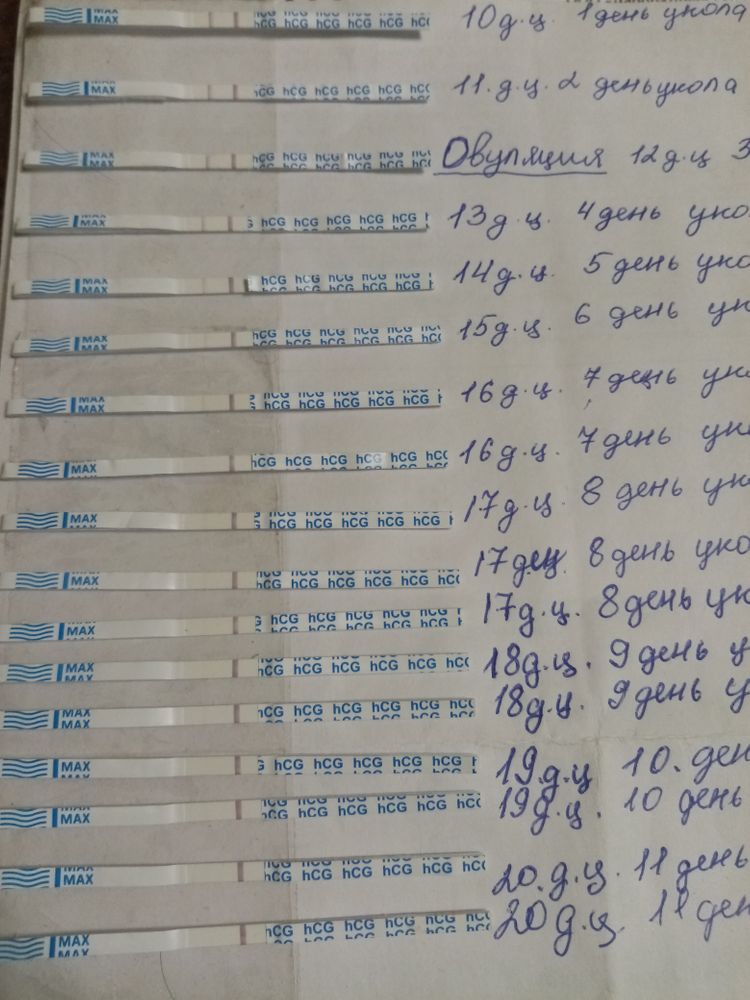 MAX MAX hCG hCG hCG hCG hCG 10 д.ц. 1 день укола
MAX hCG hCG hCG hCG 11. д.ц. 2 день укола
MAX hCG hCG hCG Овуляция 12 д.ц 3
MAX MAX hCG hCG hCG hCG 13 д.ц. 4 день уко
MAX hCG hCG hCG hCG 14 д.ц. 5 день уко
MAX hCG hCG hCG hCG 15 д.ц. 6 день ук
MAX MAX hCG hCG hCG hCG 16 д.ц. 7 день ук
MAX MAX hCG hCG hCG hCG hCG 16 д.ц. 7 день ук
MAX hCG hCG hCG hCG 17 д.ц. 8 день ук
MAX MAX hCG hCG hCG hCG 17 дец. 8 день уко
MAX MAX hCG hCG hCG hCG 17 д.ц. 8 день ук
MAX MAX hCG hCG hCG hCG 18 д.ц. 9 день у
MAX MAX hCG hCG hCG hCG 18 д.ц. 9 день у
MAX MAX hCG hCG hCG hCG 19 д.ц 10. ден
MAX MAX hCG hCG hCG hCG 19 д.ц. 10 день
MAX MAX hCG hCG hCG hCG 20. д.ц. 11 день
MAX MAX hCG hCG hCG hCG 20 д.ц. 11 ден